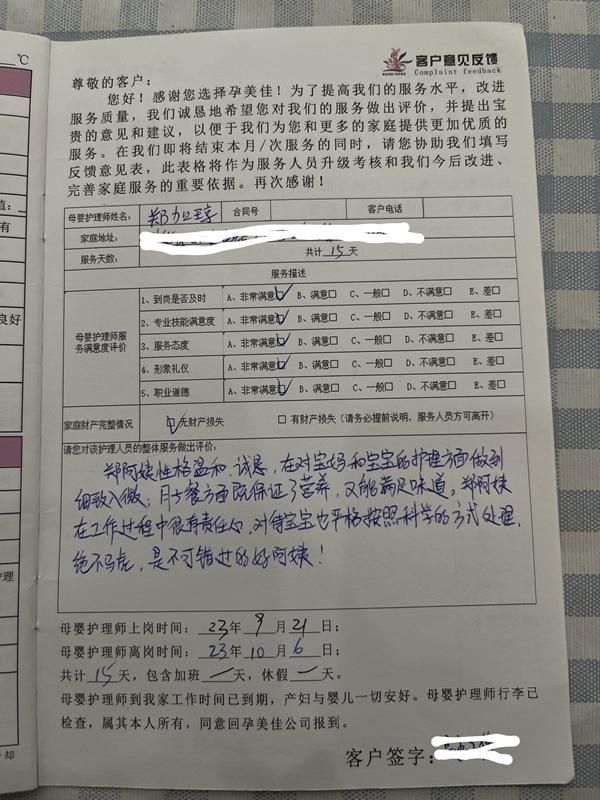 ℃
客户意见反馈
Complaint feedback
尊敬的客户：
您好！感谢您选择孕美佳！为了提高我们的服务水平，改进
服务质量，我们诚恳地希望您对我们的服务做出评价，并提出宝
贵的意见和建议，以便于我们为您和更多的家庭提供更加优质的
服务。在我们即将结束本月/次服务的同时，请您协助我们填写
反馈意见表，此表格将作为服务人员升级考核和我们今后改进、
完善家庭服务的重要依据。再次感谢！
母婴护理师姓名： 合同号 客户电话
家庭地址：
服务天数： 共计15天
服务描述
母婴护理师服务满意度评价
1、到岗是否及时 A、非常满意☑ B、满意□ C、一般□ D、不满意□ E、差□
2、专业技能满意度 A、非常满意☑ B、满意□ C、一般□ D、不满意□ E、差□
3、服务态度 A、非常满意☑ B、满意□ C、一般□ D、不满意□ E、差□
4、形象礼仪 A、非常满意☑ B、满意□ C、一般□ D、不满意□ E、差□
5、职业道德 A、非常满意☑ B、满意□ C、一般□ D、不满意□ E、差□
家庭财产完整情况 ☑无财产损失 □有财产损失（请务必提前说明，服务人员方可离开）
请您对该护理人员的整体服务做出评价：
郑阿姨性格温和、诚恳，在对宝妈和宝宝的护理方面做到
细致入微；月子餐方面既保证了营养，又能满足味道。郑阿姨
在工作过程中很有责任心，对待宝宝也严格按照科学的方式处理，
绝不马虎，是不可错过的好阿姨！
母婴护理师上岗时间：23年9月21日；
母婴护理师离岗时间：23年10月6日；
共计15天，包含加班一天，休假一天。
母婴护理师到我家工作时间已到期，产妇与婴儿一切安好。母婴护理师行李已
检查，属其本人所有，同意回孕美佳公司报到。
客户签字：